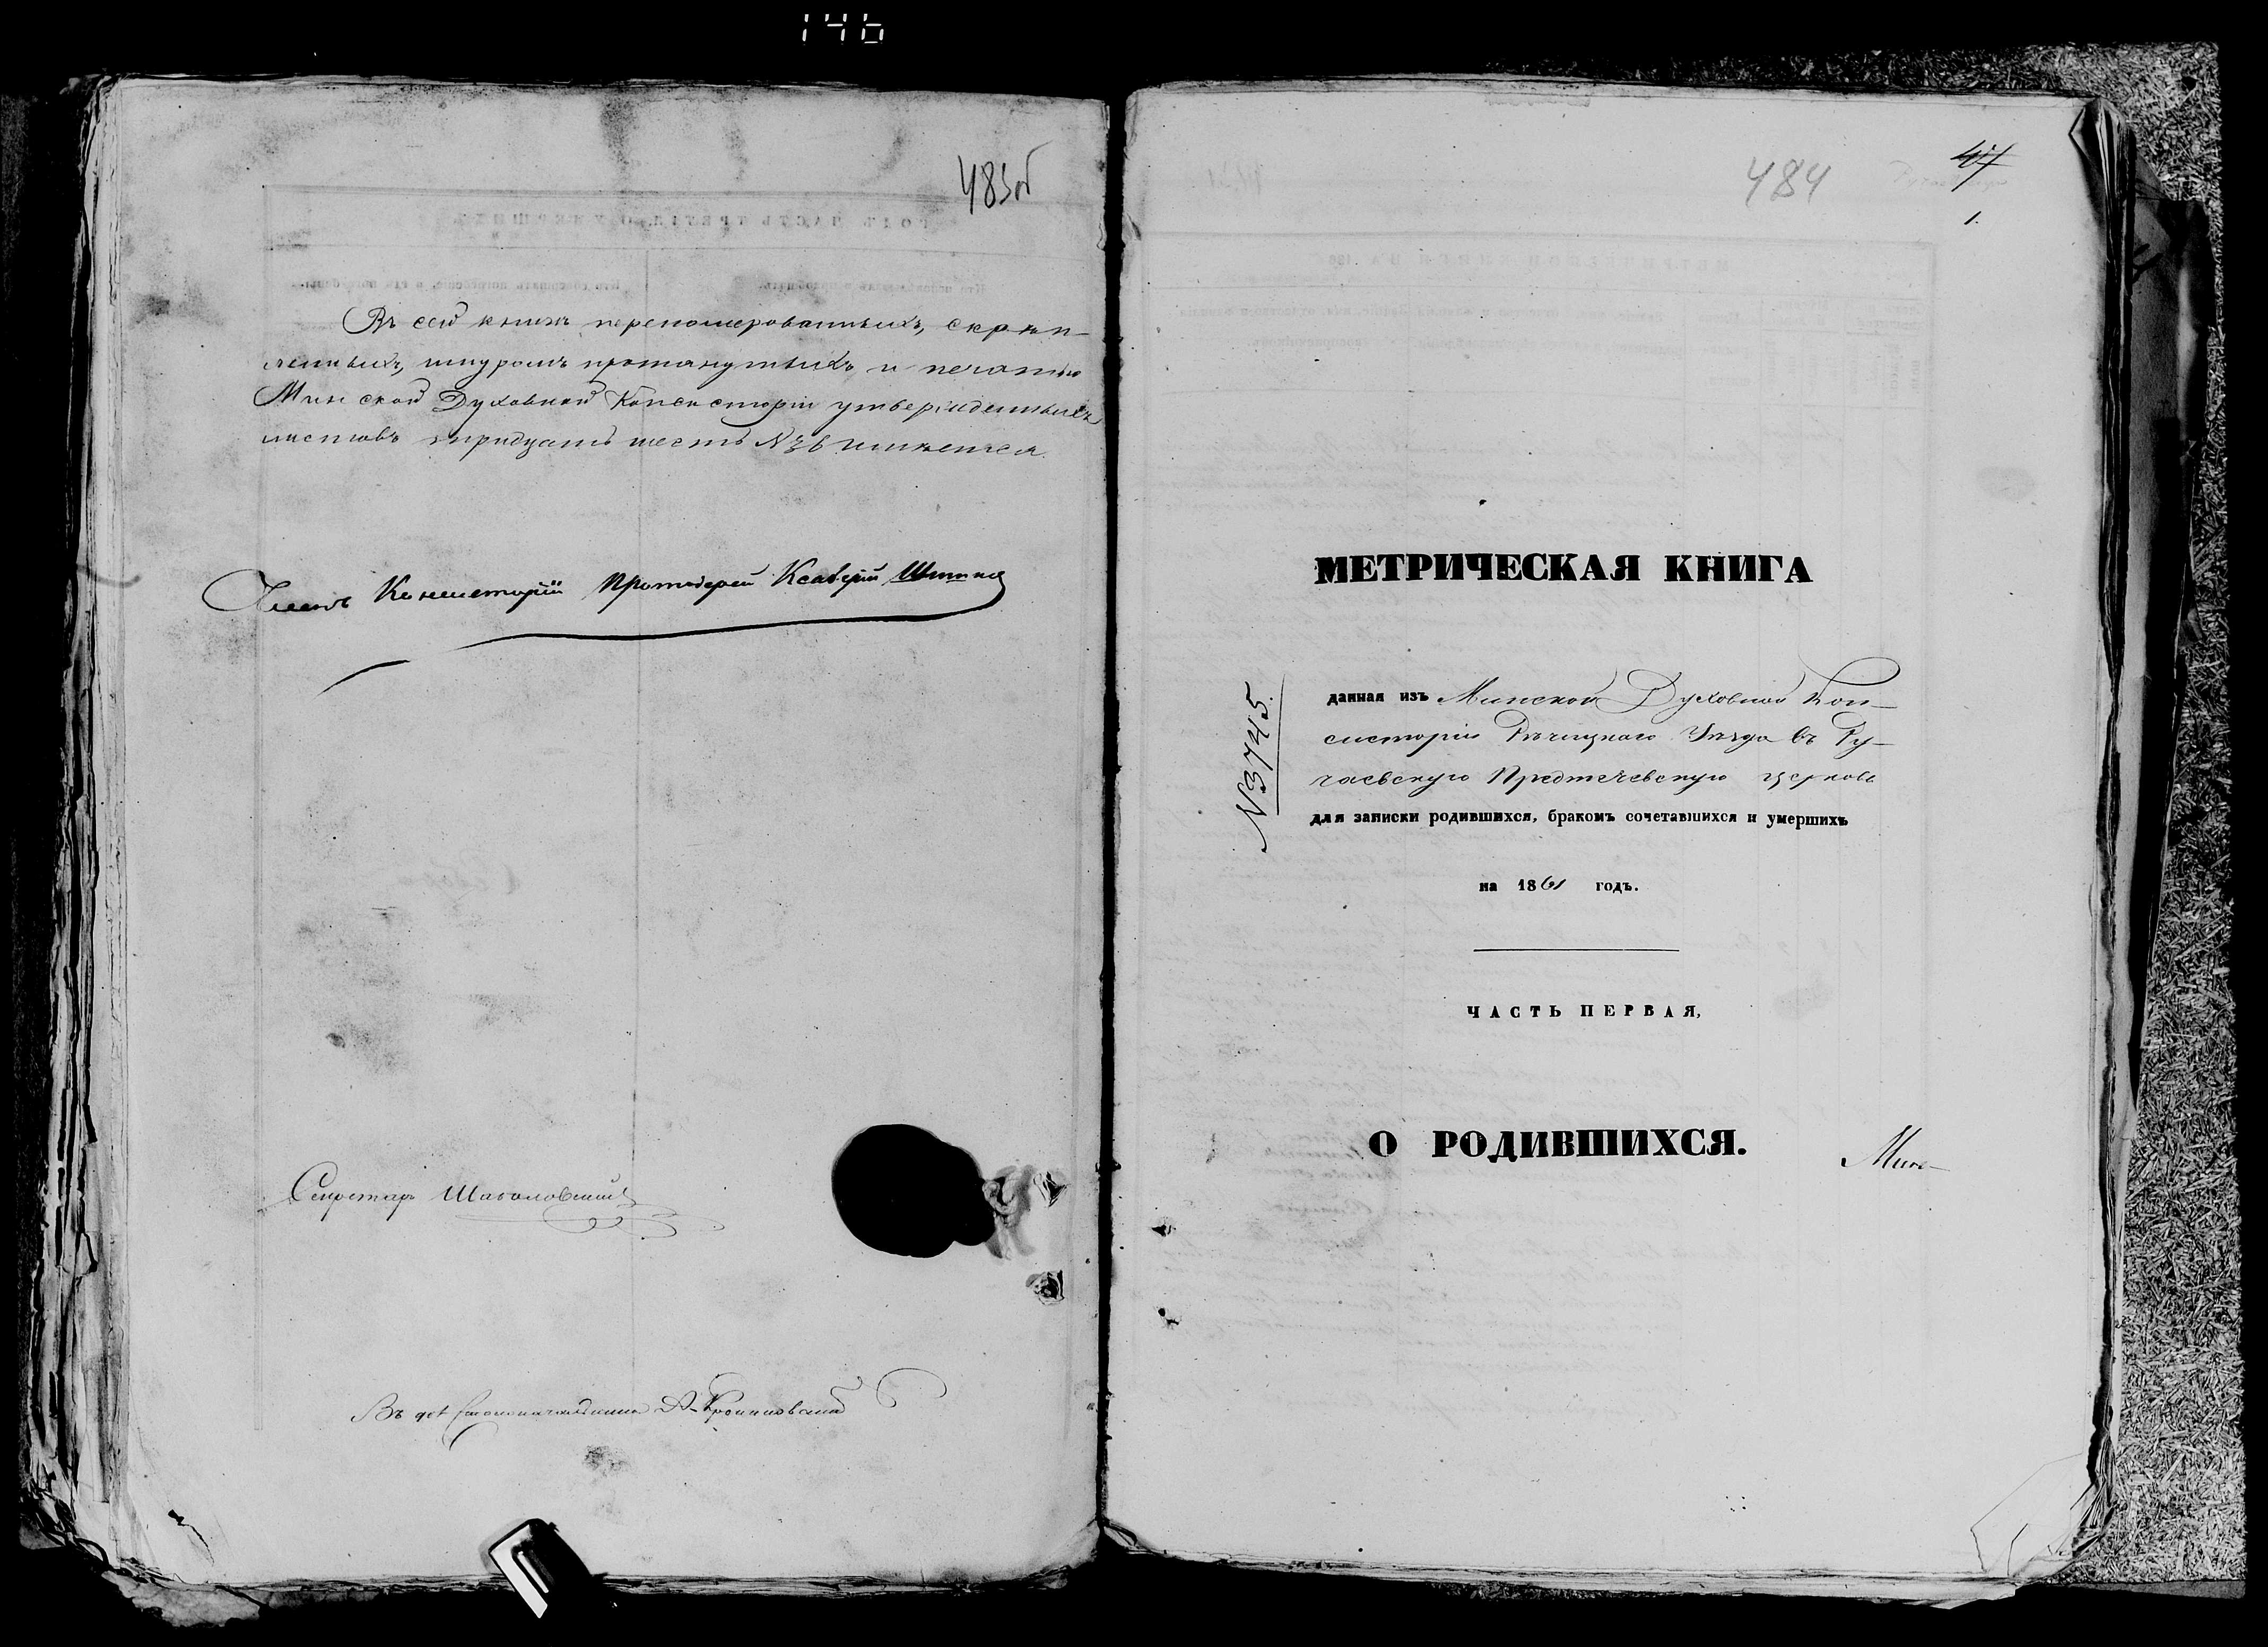 146
483об
Въ сей книгѣ перенумерованныхъ, скрѣп-
ленныхъ, шнуромъ протянутыхъ и печатью
Минской Духовной Консисторіи утвержденныхъ
листовъ тридцать шесть №36 имѣется.
Членъ Консисторіи Протоіерей Ксаверій
Секретарь
Въ
484
47
1.
МЕТРИЧЕСКАЯ КНИГА
№3745.
данная изъ Минской Духовной Кон-
систоріи Рѣчицкаго Уѣзда въ Ру-
чаевскую Предтечевскую церковь
для записки родившихся, бракомъ сочетавшихся и умершихъ
на 1861 годъ.
ЧАСТЬ ПЕРВАЯ,
О РОДИВШИХСЯ.
Мин-